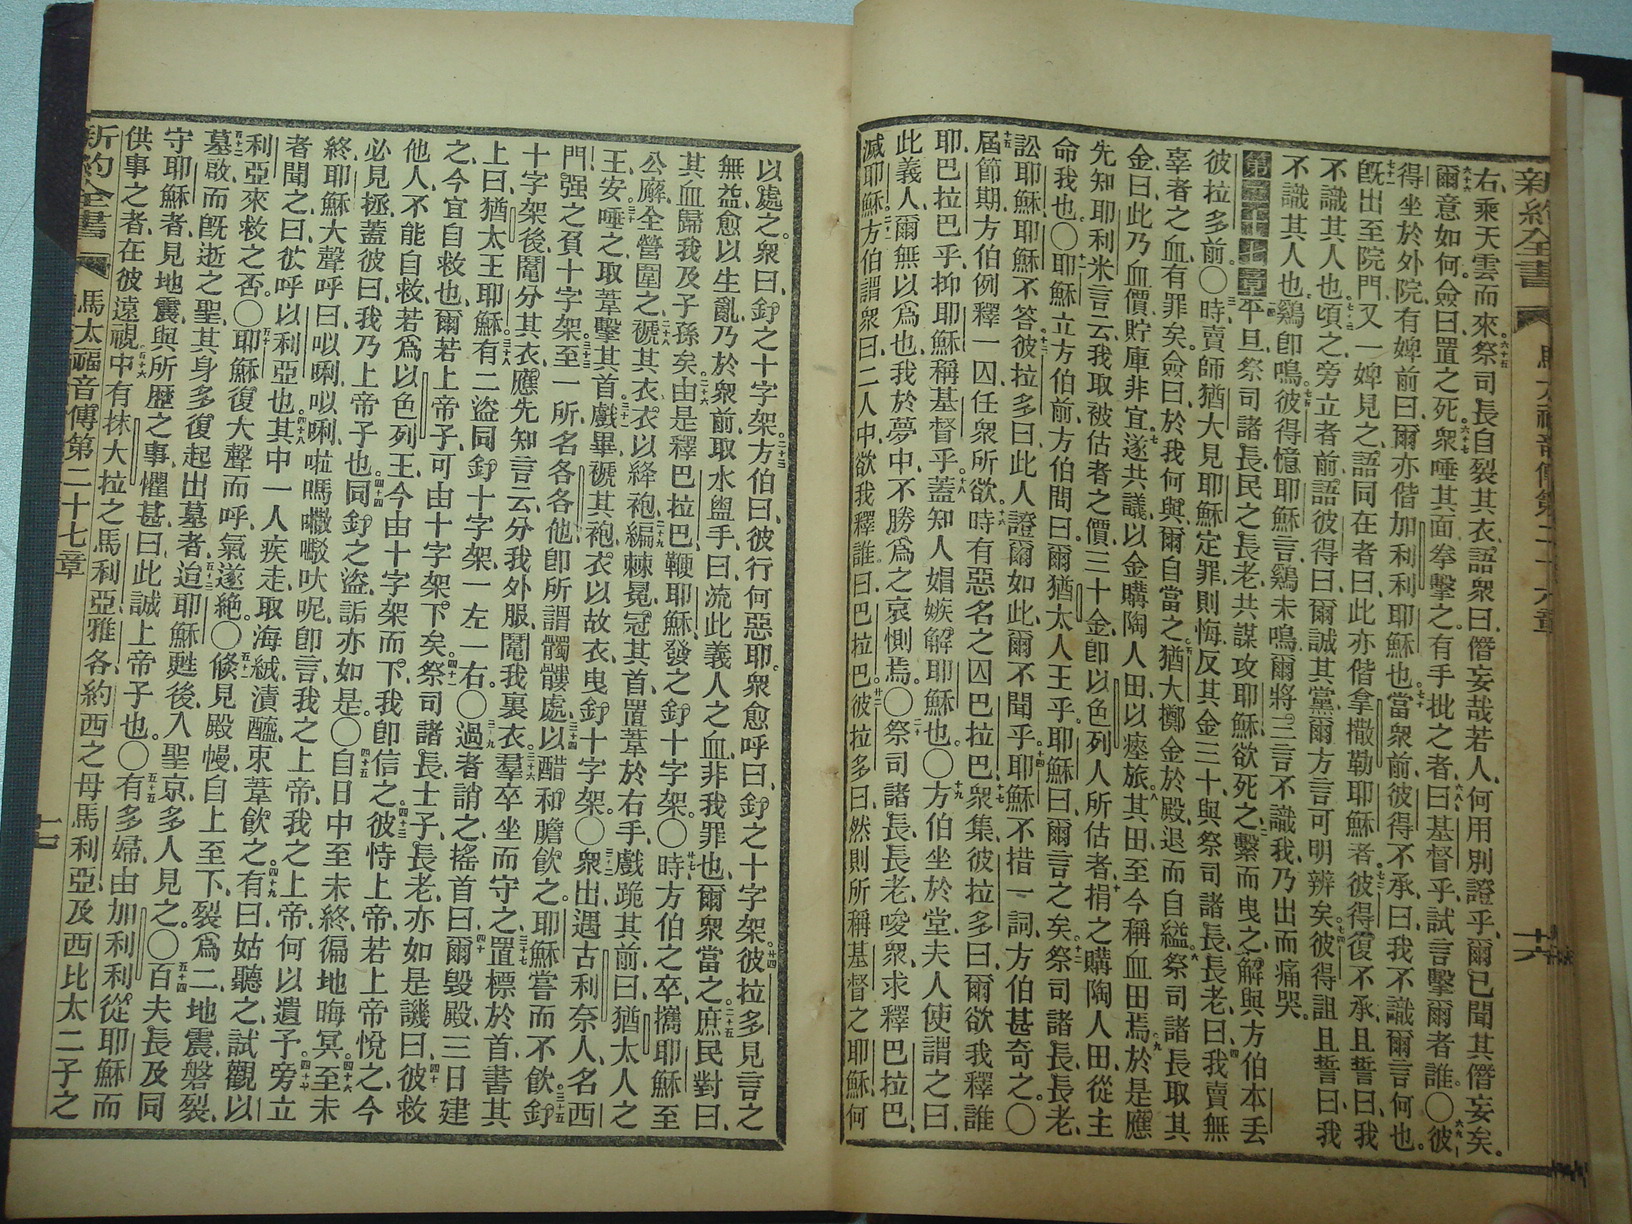 新約全書 馬太福音傳第二十六章 十六
右、乘天雲而來。六十五祭司長自裂其衣、語衆曰、僭妄哉若人、何用別證乎、爾已聞其僭妄矣。
六十六爾意如何。僉曰、置之死。六十七衆唾其面、拳擊之、有手批之者、六十八曰、基督乎、試言擊爾者誰。〇六十九彼
得坐於外院、有婢前曰、爾亦偕加利利耶穌也。七十當衆前、彼得不承、曰、我不識爾言何也。
七十一旣出至院門、又一婢見之、語同在者曰、此亦偕拿撒勒耶穌者。七十二彼得復不承、且誓曰、我
不識其人也。七十三頃之、旁立者前、語彼得曰、爾誠其黨、爾方言可明辨矣。七十四彼得詛且誓曰、我
不識其人也。鷄卽鳴、七十五彼得憶耶穌言、鷄未鳴、爾將三言不識我、乃出而痛哭。
第二十七章平旦、祭司諸長、民之長老、共謀攻耶穌、欲死之、二繫而曳之、解與方伯本丟
彼拉多前。〇三時、賣師猶大、見耶穌定罪、則悔、反其金三十、與祭司諸長、長老、四曰、我賣無
辜者之血、有罪矣。僉曰、於我何與、爾自當之。五猶大擲金於殿、退而自縊。六祭司諸長取其
金曰、此乃血價、貯庫非宜、七遂共議、以金購陶人田、以瘞旅。八其田至今稱血田焉。九於是應
先知耶利米言云、我取被估者之價三十金、卽以色列人所估者、十捐之購陶人田、從主
命我也。〇十一耶穌立方伯前、方伯問曰、爾猶太人王乎、耶穌曰、爾言之矣。十二祭司諸長、長老、
訟耶穌、耶穌不答。十三彼拉多曰、此人證爾如此、爾不聞乎。十四耶穌不措一詞、方伯甚奇之。〇
十五屆節期、方伯例釋一囚、任衆所欲。十六時有惡名之囚巴拉巴。十七衆集、彼拉多曰、爾欲我釋誰、
耶巴拉巴乎、抑耶穌稱基督乎。十八蓋知人媢嫉解耶穌也。〇十九方伯坐於堂、夫人使謂之曰、
此義人、爾無以爲也、我於夢中、不勝爲之哀惻焉。〇二十祭司諸長、長老、唆衆求釋巴拉巴、
滅耶穌。二一方伯謂衆曰、二人中、欲我釋誰、曰、巴拉巴。廿二彼拉多曰、然則所稱基督之耶穌、何
以處之。衆曰、釘之十字架。二十三方伯曰、彼行何惡耶。衆愈呼曰、釘之十字架。廿四彼拉多見言之
無益、愈以生亂、乃於衆前、取水盥手曰、流此義人之血、非我罪也、爾衆當之。二十五庶民對曰、
其血歸我、及子孫矣。二十六由是釋巴拉巴、鞭耶穌、發之釘十字架。〇廿七時、方伯之卒、攜耶穌至
公廨、全營圍之、二十八褫其衣、衣以絳袍、二十九編棘冕冠其首、置葦於右手、戲跪其前曰、猶太人之
王安。三十唾之、取葦擊其首、三十一戲畢、褫其袍、衣以故衣、曳釘十字架。〇三十二衆出、遇古利奈人名西
門、强之負十字架。三十三至一所、名各各他、卽所謂髑髏處、三十四以醋和膽飮之、耶穌嘗而不飮。三十五釘
十字架後、鬮分其衣、應先知言云、分我外服、鬮我裏衣。三十六羣卒坐而守之、三十七置標於首、書其
上曰、猶太王耶穌。三十八有二盜同釘十字架、一左一右。〇三十九過者誚之、搖首曰、四十爾毀殿、三日建
之、今宜自救也、爾若上帝子、可由十字架下矣。四十一祭司諸長、士子、長老、亦如是譏曰、四十二彼救
他人、不能自救、若爲以色列王、今由十字架而下、我卽信之。四十三彼恃上帝、若上帝悅之、今
必見拯、蓋彼曰、我乃上帝子也。四十四同釘之盜、詬亦如是。〇四十五自日中至未終、徧地晦冥。四十六至未
終、耶穌大聲呼曰、以唎以唎啦嗎㘔馭吠呢、卽言我之上帝、我之上帝、何以遺予。四十七旁立
者聞之曰、彼呼以利亞也。四十八其中一人疾走、取海絨漬醯、束葦飮之。四十九有曰、姑聽之、試觀以
利亞來救之否。〇五十耶穌復大聲而呼、氣遂絶。〇五一倏見殿幔、自上至下、裂爲二、地震磐裂、
五十二墓啟、而旣逝之聖、其身多復起出墓者、五十三迨耶穌甦後、入聖京、多人見之。〇五十四百夫長及同
守耶穌者、見地震、與所歷之事、懼甚、曰、此誠上帝子也。〇五十五有多婦、由加利利從耶穌而
供事之者、在彼遠視、五十六中有抹大拉之馬利亞、雅各約西之母馬利亞、及西比太二子之
新約全書 馬太福音傳第二十七章 十七